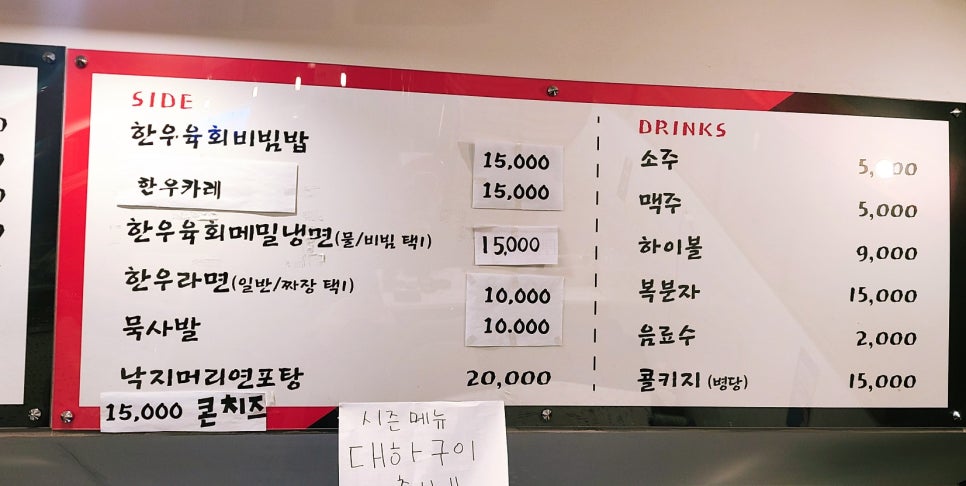 SIDE
한우육회비빔밥 15,000
한우카레 15,000
한우육회메밀냉면(물/비빔 택1) 15,000
한우라면(일반/짜장 택1) 10,000
묵사발 10.000
낙지머리연포탕 20,000
15,000 콘치즈
DRINKS
소주
맥주 5,000
하이볼 9,000
복분자 15,000
음료수 2,000
콜키지(병당) 15,000
시즌메뉴
대하구이